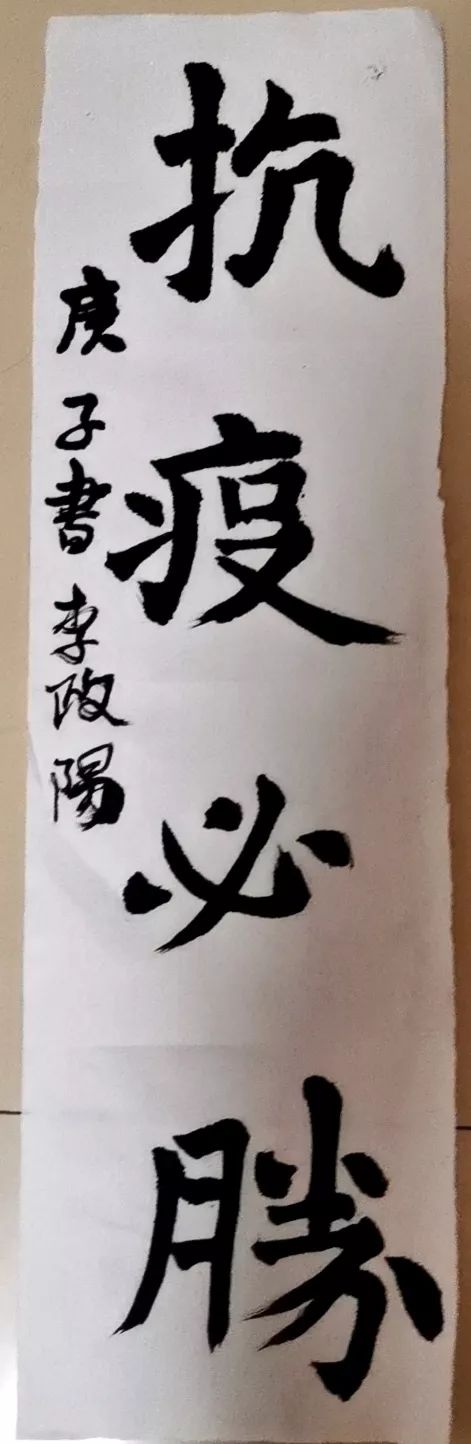 抗疫必勝
庚子書李政陽